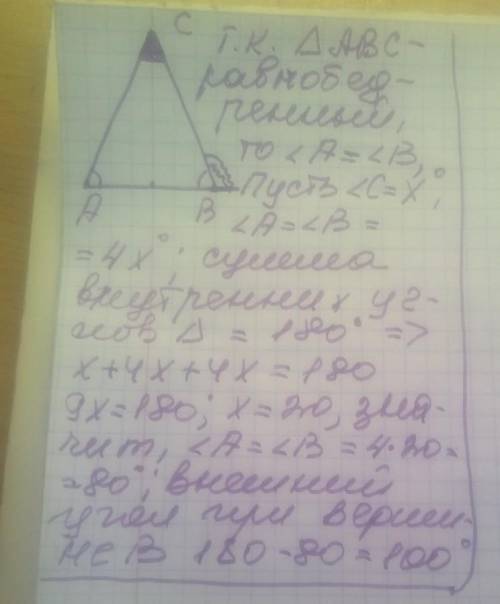 C
Т.К. △ABC-
равнобед-
ренный,
то <A=<B,
Пусть <C=x°,
A B
<A=<B=
=4x°; сумма
внутренних уг-
лов △ = 180° =>
x+4x+4x=180
9x=180; x=20, зна-
чит, <A=<B=4·20=
=80°; внешний
угол при верши-
не B 180-80=100°